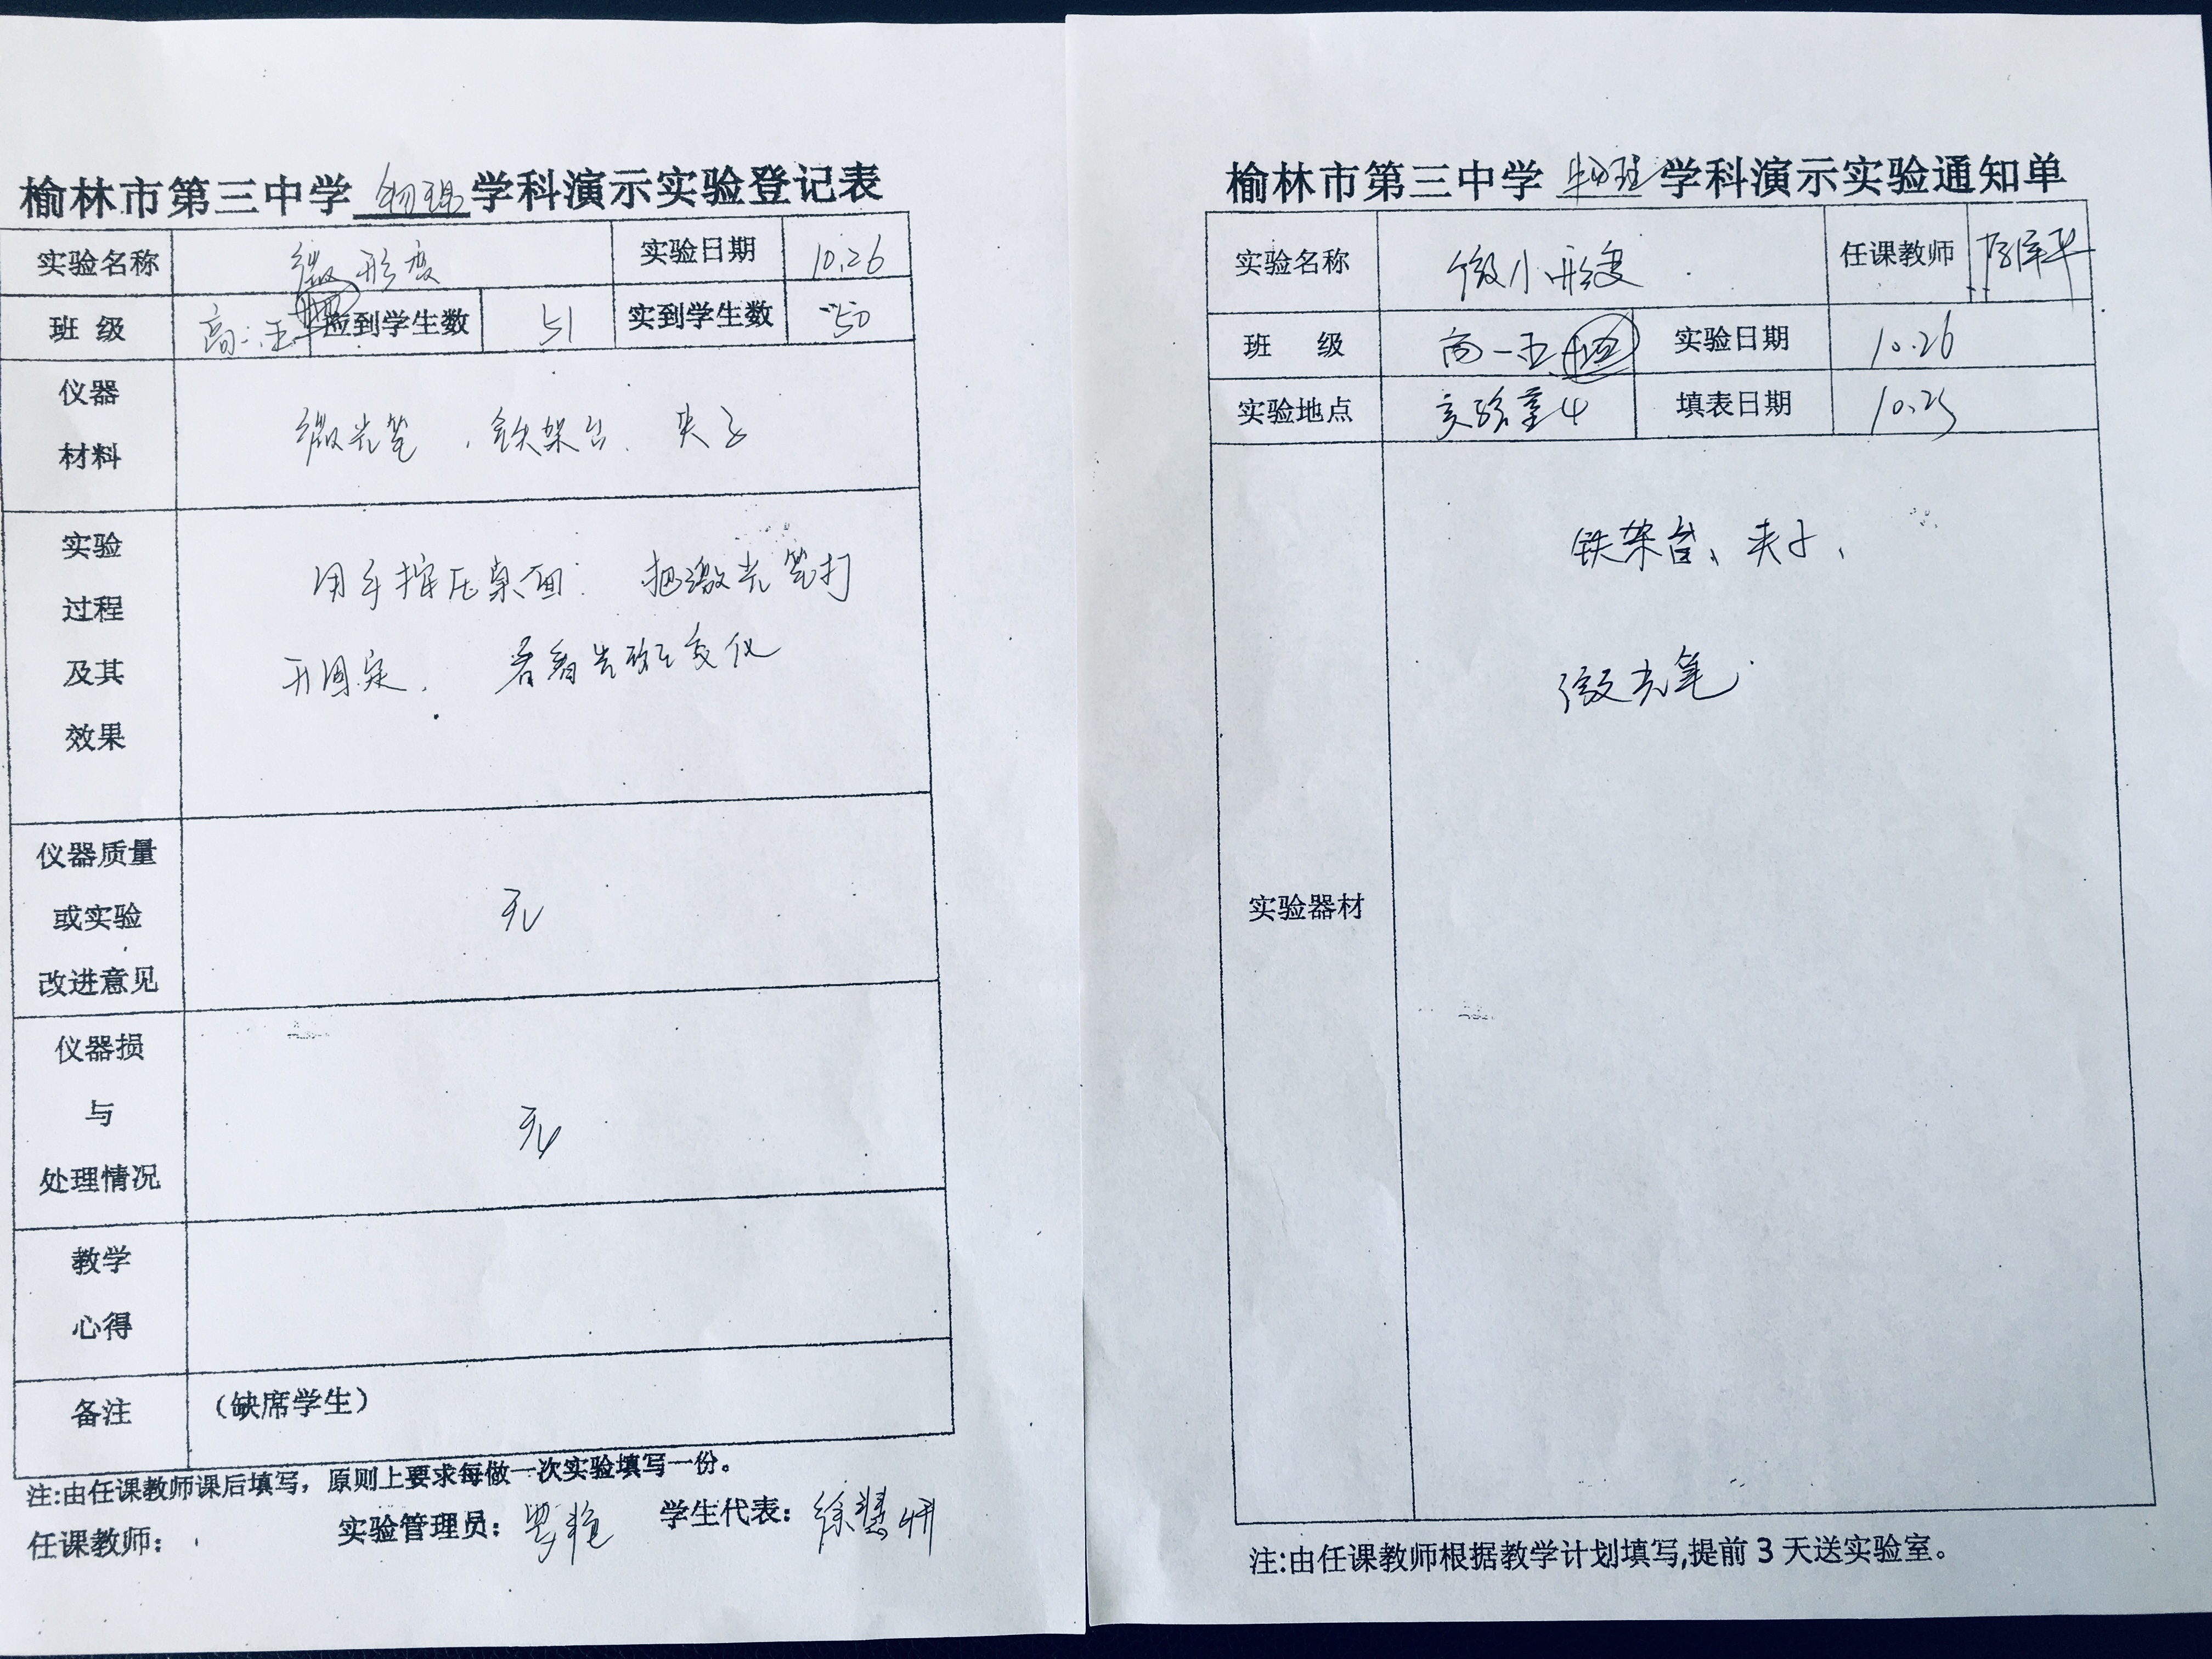 榆林市第三中学物理学科演示实验登记表
实验名称 微形变 实验日期 10.26
班 级 高一五 应到学生数 51 实到学生数 50
仪器
材料
激光笔、铁架台、夹子
实验
过程
及其
效果
用手按压桌面. 把激光笔打
开固定, 看看光斑变化
仪器质量
或实验
改进意见
无
仪器损
与
处理情况
无
教学
心得
备注 (缺席学生)
注:由任课教师课后填写，原则上要求每做一次实验填写一份。
任课教师: 实验管理员: 学生代表: 徐慧妍
榆林市第三中学物理学科演示实验通知单
实验名称 微小形变 任课教师
班 级 高一五 实验日期 10.26
实验地点 实验室4 填表日期 10.25
实验器材
铁架台、夹子、
激光笔
注:由任课教师根据教学计划填写,提前 3 天送实验室。